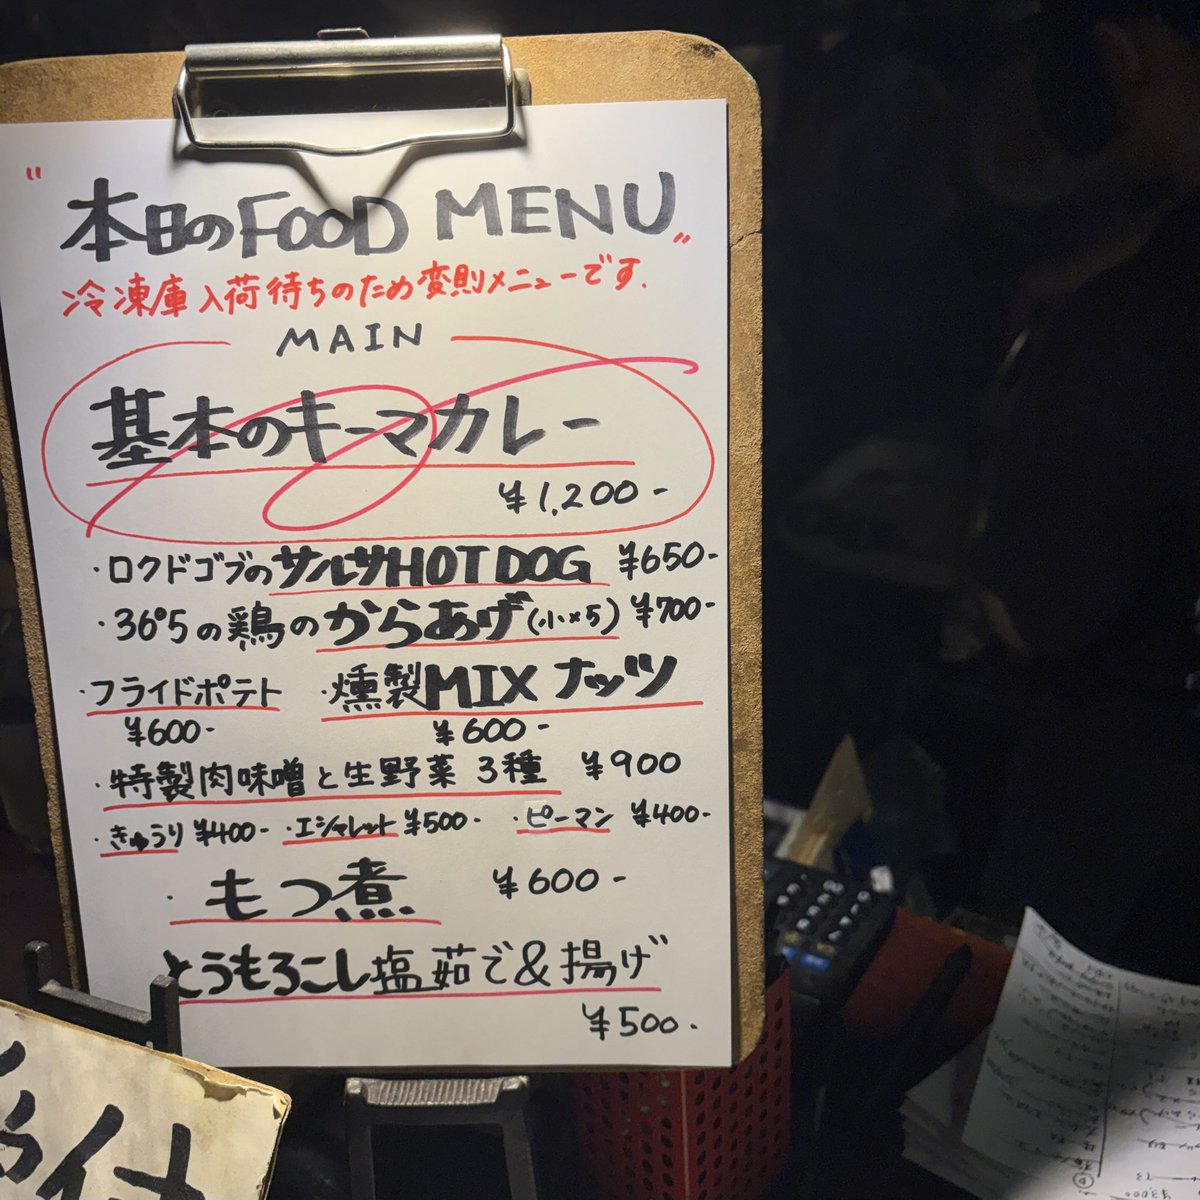 "本日のFOOD MENU"
冷凍庫入荷待ちのため変則メニューです.
MAIN
基本のキーマカレー
¥1,200-
・ロクドゴブのサルサHOT DOG ¥650-
・36°5の鶏のからあげ(小×5) ¥700-
・フライドポテト ・燻製MIXナッツ
¥600- ¥600-
・特製肉味噌と生野菜 3種 ¥900
・きゅうり ¥400- ・エシャレット ¥500- ・ピーマン ¥400-
・もつ煮 ¥600-
とうもろこし塩茹で&揚げ
¥500-